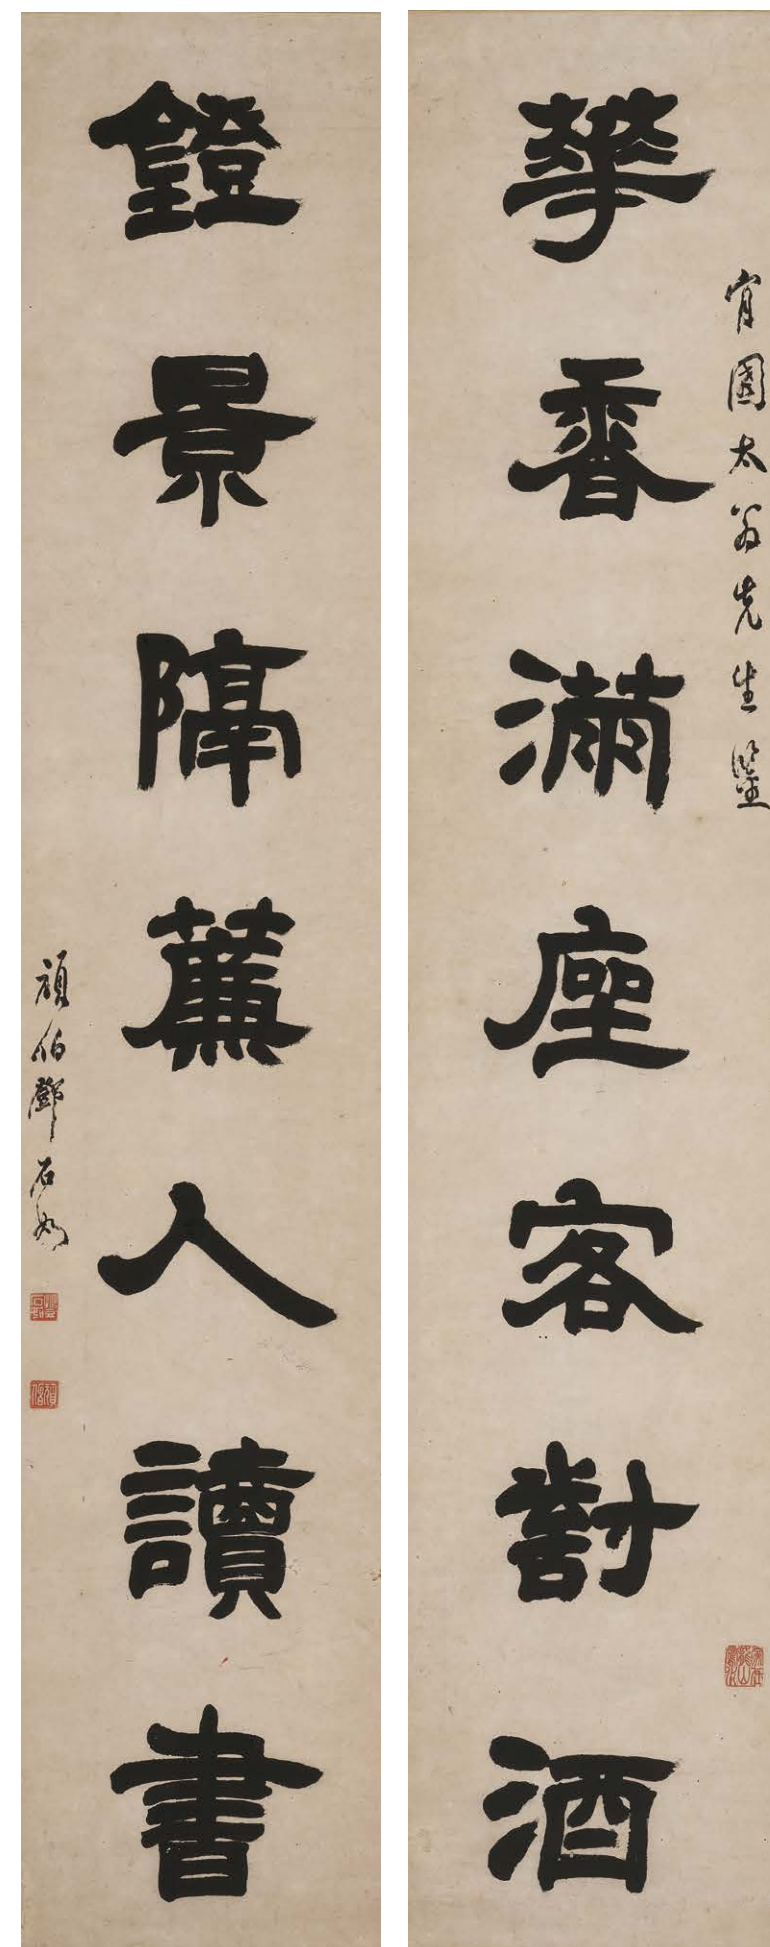 華香滿座客對酒
甯國太翁先生鑒
鐙景隔蒹人讀書
頑伯鄧石如